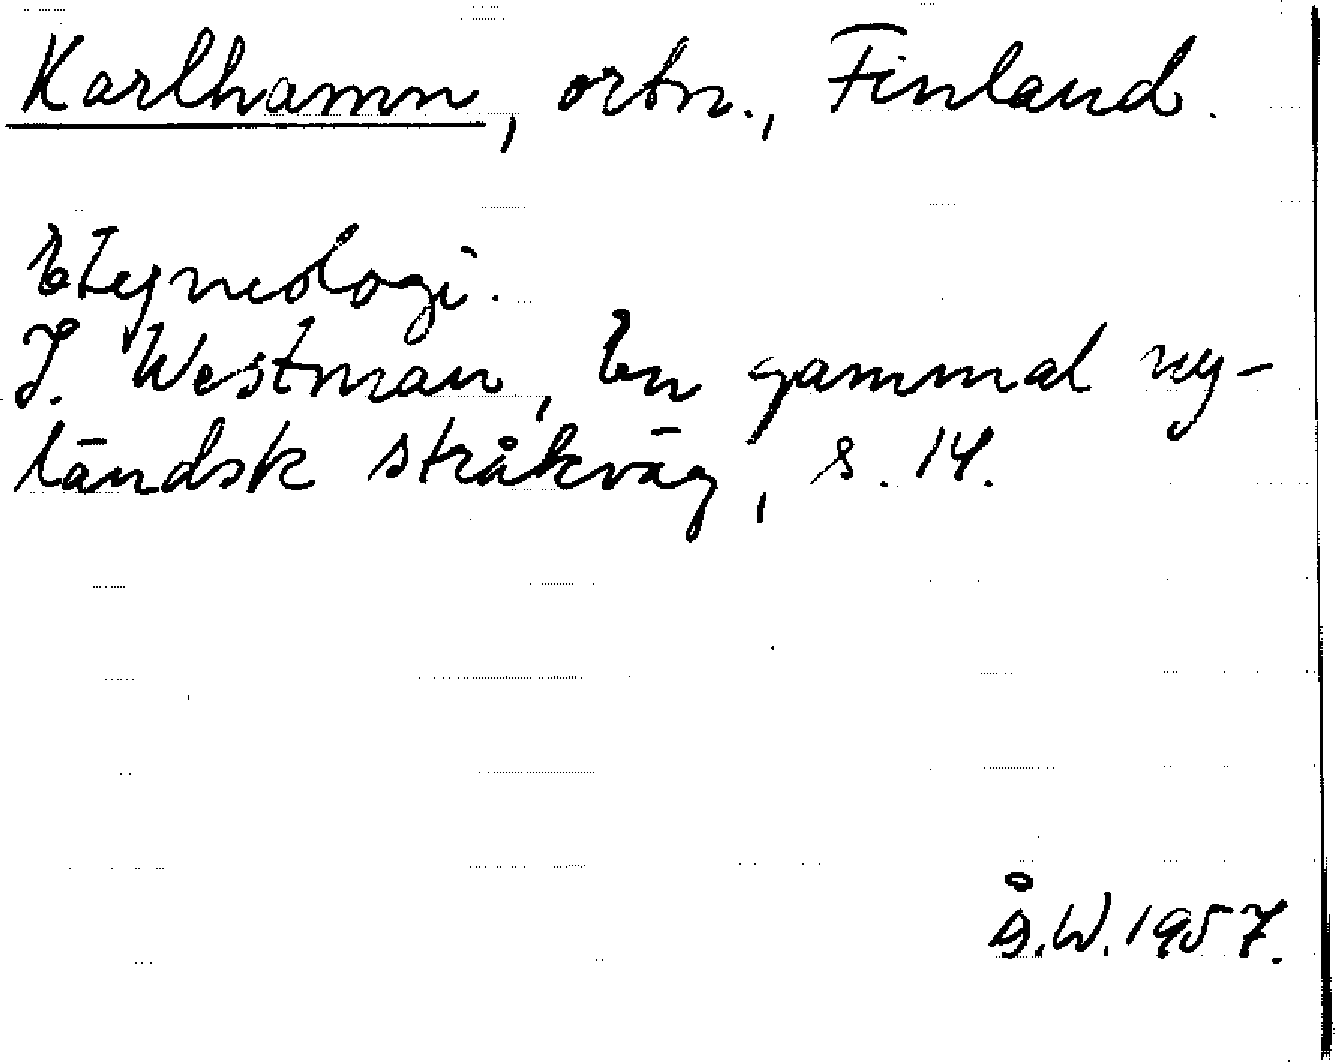 Karlhamn, ortn., Finland.
Etymologi.
I. Westman, En gammal ny-
ländsk stråkväg, s. 14.
Å.W. 1957.